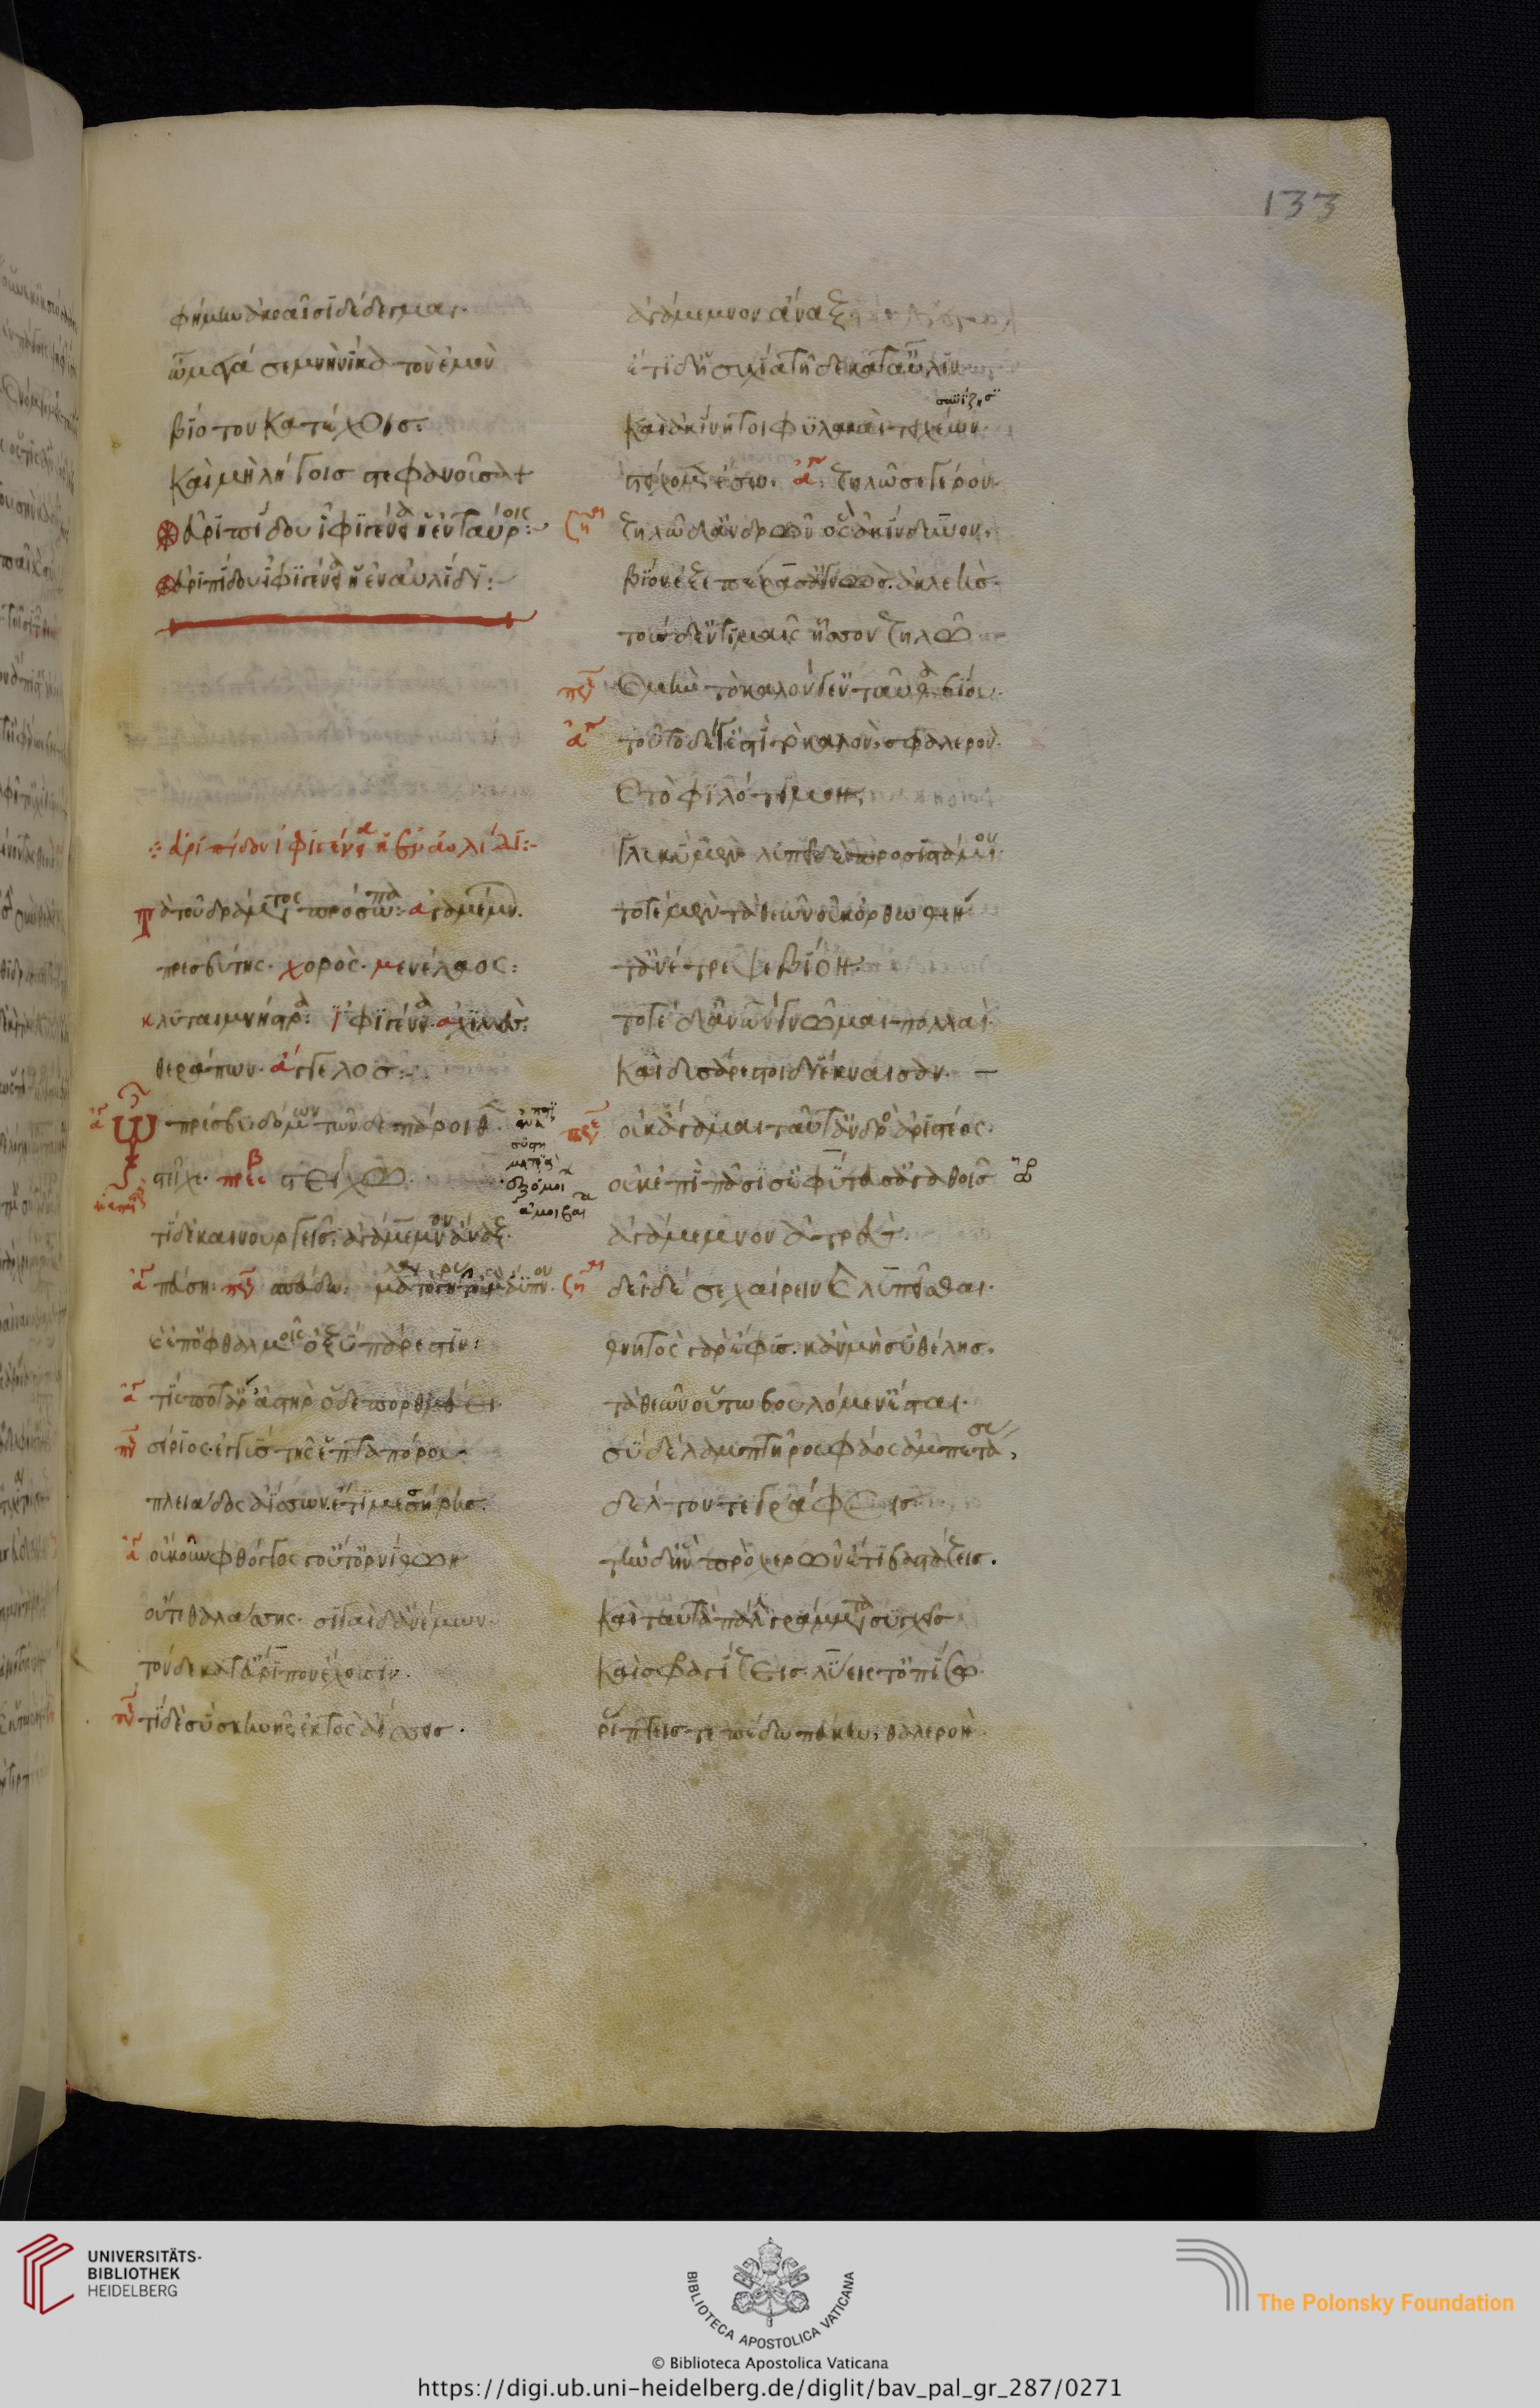 133
φήμην ἀκοαῖσι δέδεγμαι.
ὦ μέγα σεμνὴ νίκα τὸν ἐμὸν
βίοτον κατέχοις.
καὶ μὴ λήγοις στεφανοῦσα +
εὐριπίδου ἰφιγένεια ἡ ἐν ταύροις :
εὐριπίδου ἰφιγένεια ἡ ἐν αὐλίδι :
εὐριπίδου ἰφιγένεια ἡ ἐν αὐλίδι :
τὰ τοῦ δράματος πρόσωπα : ἀγαμέμνων.
πρεσβύτης. χορός. μενέλαος :
κλυταιμνήστρα : ἰφιγένεια. ἀχιλλεύς :
θεράπων. ἄγγελος :
ὦ πρέσβυ δόμων τῶνδε πάροιθεν.
στεῖχε. πρεσ στείχω.
τί δὲ καινουργεῖς. ἀγάμεμνον ἄναξ.
πεύση. σπεύδω. μάλα τοι γῆρας τοὐμὸν ἄυπνον.
καὶ ἐπ' ὀφθαλμοῖς ὀξὺ πάρεστιν :
τίς ποτ' ἄρ' ἀστὴρ ὅδε πορθμεύει
σείριος. ἐγγὺς τῆς ἑπταπόρου
πλειάδος ἀίσσων. ἔτι μεσσήρης.
οὔκουν φθόγγος γ' οὔτ' ὀρνίθων
οὔτε θαλάσσης. σιγαὶ δ' ἀνέμων.
τόνδε κατ' εὔριπον ἔχουσιν.
τί δὲ σὺ σκηνῆς ἐκτὸς ἀίσσεις.
ἀγάμεμνον ἄναξ
ἔτι δ' ἡσυχία τῇδε κατ' αὖλιν
καὶ ἀκίνητοι φυλακαὶ τειχέων.
στείχωμεν ἔσω. ἀγ. ζηλῶ σε γέρον.
ζηλῶ δ' ἀνδρῶν ὃς ἀκίνδυνον.
βίον ἐξεπέρασ' ἀγνὼς. ἀκλεής.
τοὺς δ' ἐν τιμαῖς ἧσσον ζηλῶ
πρ καὶ μὴν τὸ καλόν γ' ἐνταῦθα βίου.
ἀγ τοῦτο δέ γ' ἐστὶ τὸ καλὸν σφαλερόν.
καὶ τὸ φιλότιμον
γλυκὺ μὲν λυπεῖ δὲ προσιστάμενον.
τοτὲ μὲν τὰ θεῶν οὐκ ὀρθωθέντ'
ἀνέτρεψε βίον.
τοτὲ δ' ἀνθρώπων γνῶμαι πολλαὶ
καὶ δυσάρεστοι διέκναισαν.
πρ οὐκ ἄγαμαι ταῦτ' ἀνδρὸς ἀριστέος.
οὐκ ἐπὶ πᾶσί σ' ἐφύτευσ' ἀγαθοῖς
ἀγάμεμνον ἀτρεύς.
δεῖ δέ σε χαίρειν καὶ λυπεῖσθαι.
θνητὸς γὰρ ἔφυς. κἂν μὴ σὺ θέλῃς.
τὰ θεῶν οὕτω βουλόμεν' ἔσται.
σὺ δὲ λαμπτῆρος φάος ἀμπετάσας
δέλτον τε γράφεις
τήνδ' ἣν πρὸ χερῶν ἔτι βαστάζεις.
καὶ ταὐτὰ πάλιν γράμματα συγχεῖς
καὶ σφραγίζεις. λύεις τ' ὀπίσω.
ῥίπτεις τε πέδῳ πεύκην, θαλερὸν
UNIVERSITÄTS-
BIBLIOTHEK
HEIDELBERG
BIBLIOTECA APOSTOLICA VATICANA
© Biblioteca Apostolica Vaticana
The Polonsky Foundation
https://digi.ub.uni-heidelberg.de/diglit/bav_pal_gr_287/0271